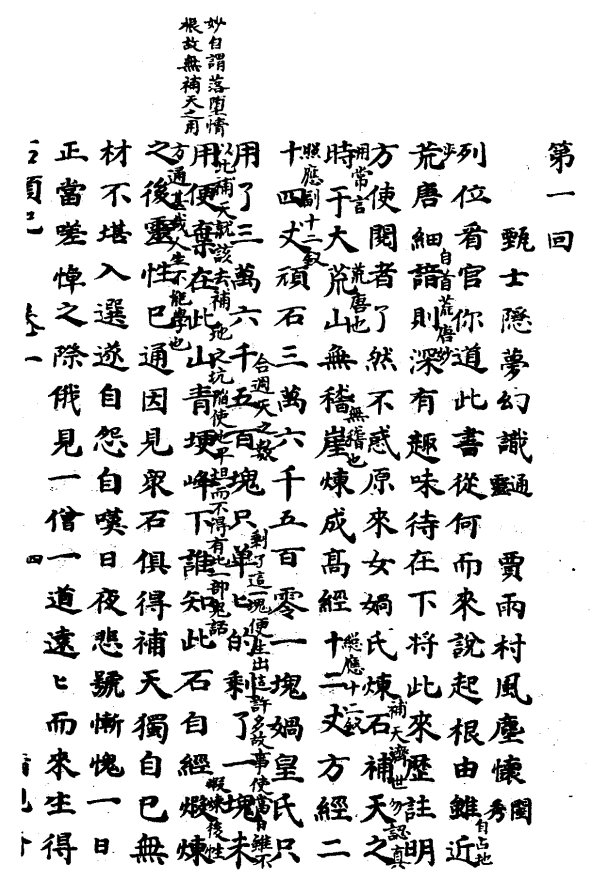 第一回
甄士隱夢幻識通靈 賈雨村風塵懷閨秀
列位看官你道此書從何而來說起根由雖近
自占地
步
自首荒唐妙
荒唐細諳則深有趣味待在下將此來歷註明
方使閱者了然不惑原來女媧氏煉石補天之
補天濟世勿認真
用常言
時于大荒山無稽崖煉成高經十二丈方經二
荒唐也
無稽也
總應十二釵
十四丈頑石三萬六千五百零一塊媧皇氏只
照應副十二釵
用了三萬六千五百塊只單匕的剩了一塊未
合週天之數
剩了這一塊便生出這許多故事使當日雖不
以此補天就該去補地之坑陷使地平坦而不得有此一部鬼話
用便棄在此山青埂峰下誰知此石自經煆煉
妙自謂落墮情
根故無補天之用
煆煉後性
方通甚哉人生不能學也
之後靈性已通因見眾石俱得補天獨自己無
材不堪入選遂自怨自嘆日夜悲號慚愧一日
正當嗟悼之際俄見一僧一道遠匕而來生得
石頭記 卷一 四